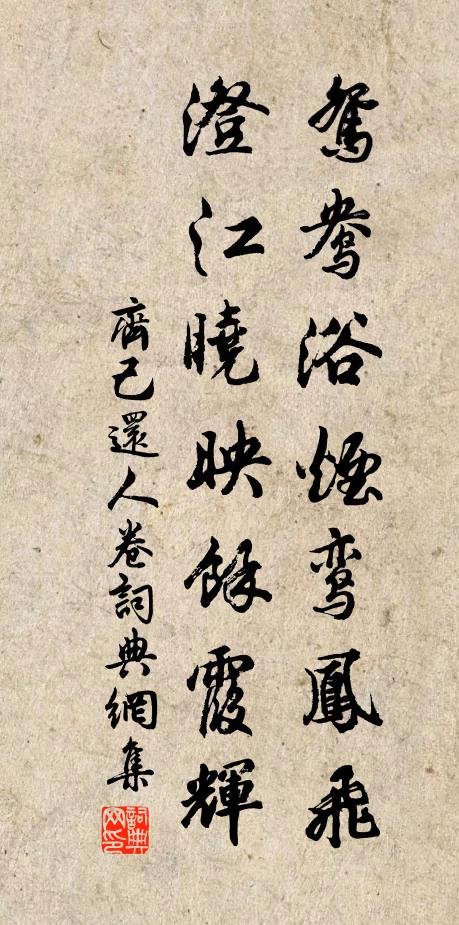 鴛鴦浴煙鸾鳳飛
澄江曉映餘霞輝
齊己還人卷詞典網集
詞典網印